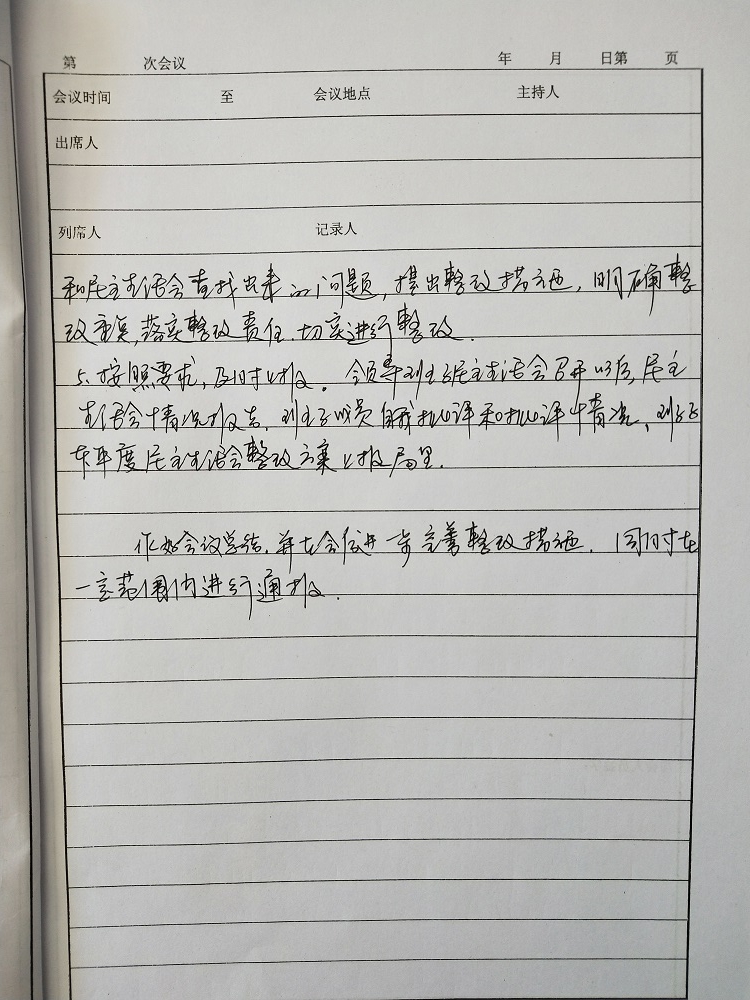 第 次会议 年 月 日第 页
会议时间 至 会议地点 主持人
出席人
列席人 记录人
和民主生活会查找出来的问题,提出整改措施,明确整
改重点,落实整改责任.切实进行整改.
5.按照要求,及时上报。领导班子民主生活会召开以后,民主
生活会情况报告.班子成员自我批评和批评情况,班子
本年度民主生活会整改方案上报局里.
作好会议总结.并在会后进一步完善整改措施.同时在
一定范围内进行通报.